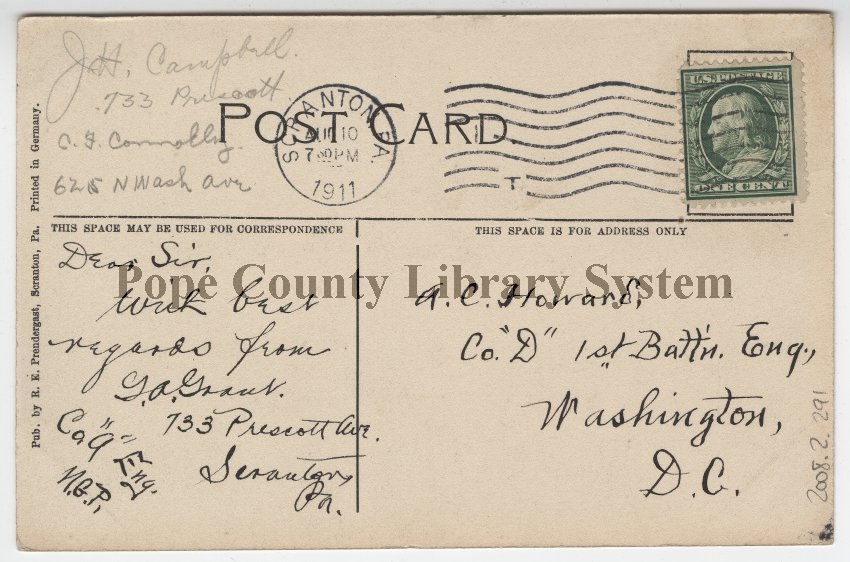 J.H. Campbell.
733 Prescott
C. F. Connolly.
625 N Wash ave
POST CARD.
SCRANTON, PA.
AUG 10
7 30 PM
1911
T
U.S. POSTAGE
ONE CENT
THIS SPACE MAY BE USED FOR CORRESPONDENCE
THIS SPACE IS FOR ADDRESS ONLY
Dear Sir,
With best
regards from
G.A. Grant.
733 Prescott Ave.
Scranton,
Pa.
Co. "A" Eng.
N.G.P.
A. C. Howard,
Co. "D" 1st Batt'n. Eng.,
Washington,
D.C.
Pub. by R. E. Prendergast, Scranton, Pa. Printed in Germany.
2008.2.291
Pope County Library System